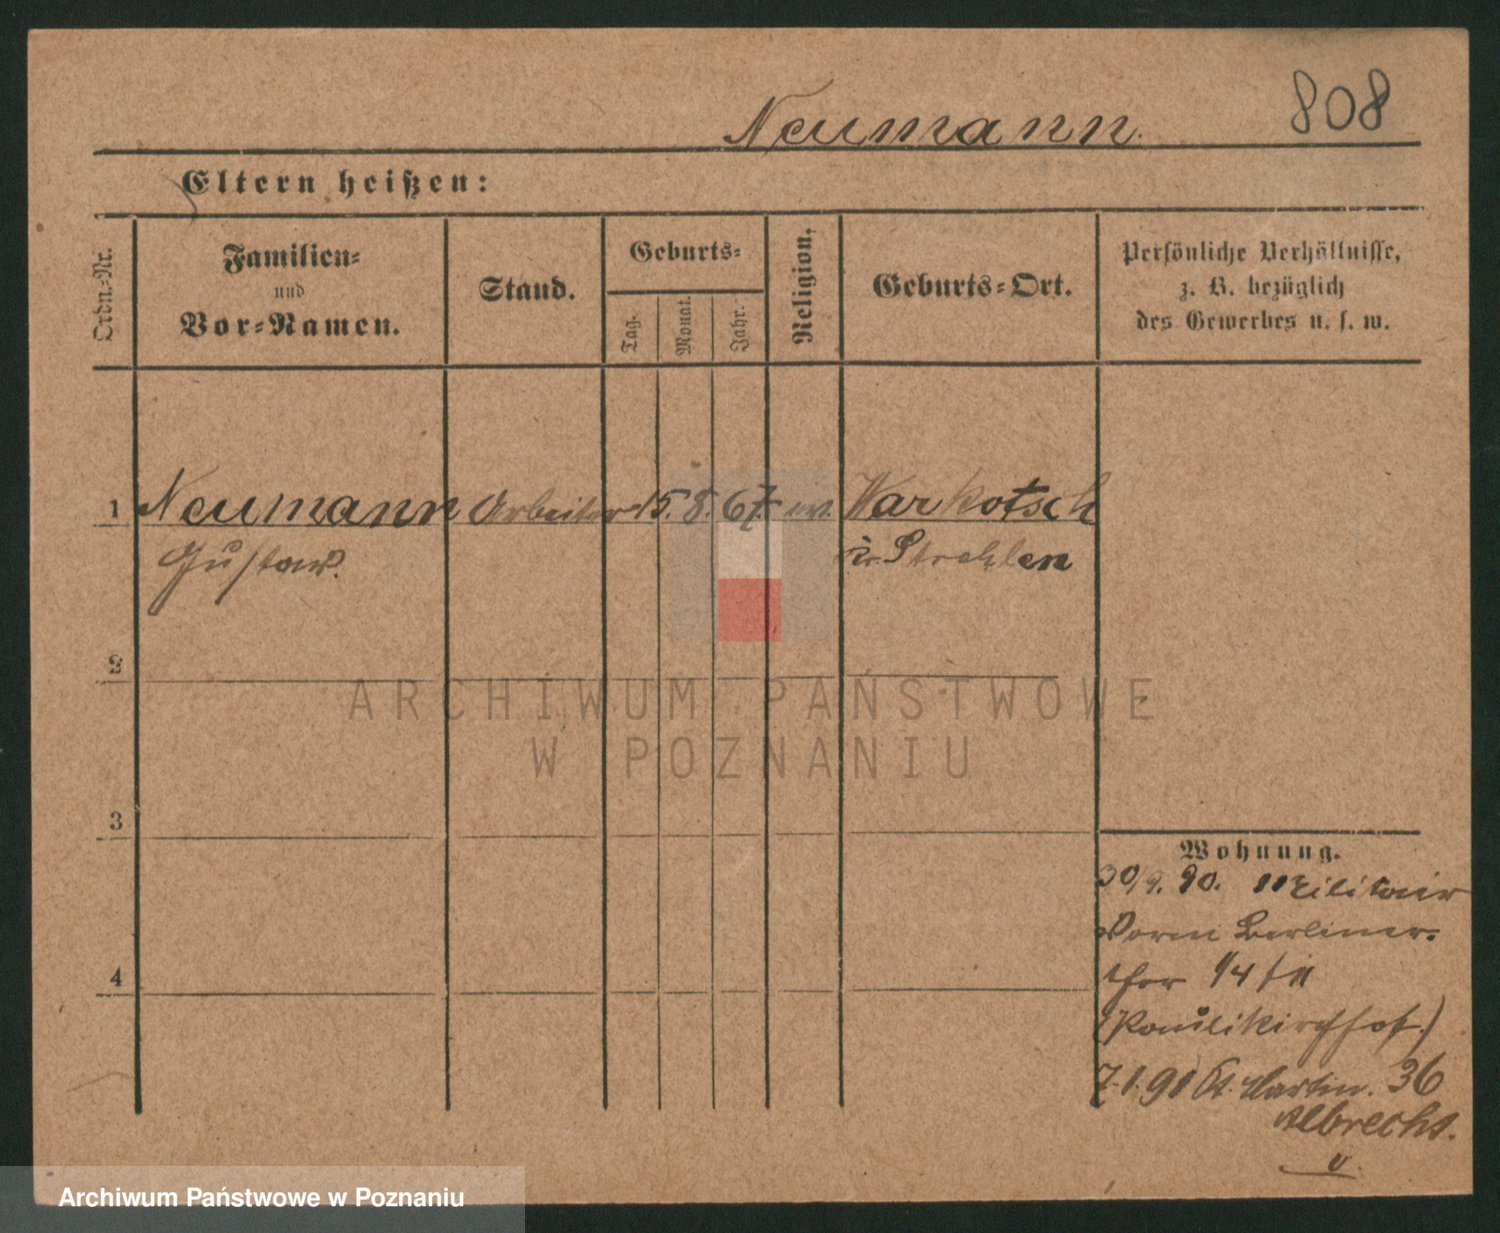 Neumann.
808
Eltern heißen:
Ordn.-Nr.
Familien-
und
Vor-Namen.
Stand.
Geburts-
Tag.
Monat.
Jahr.
Religion.
Geburts-Ort.
Persönliche Verhältnisse,
z. B. bezüglich
des Gewerbes u. s. w.
1 Neumann Arbeiter 15. 8. 67. ev. Warkotsch
Gustav.
Kr. Strehlen
2
3
4
Wohnung.
30/9. 90. Militair
Vorm Berliner-
thor 1/4 /11
(Paulikirchhof.)
7.1.91 St. Martin. 36
Albrecht.
ARCHIWUM PAŃSTWOWE
W POZNANIU
Archiwum Państwowe w Poznaniu